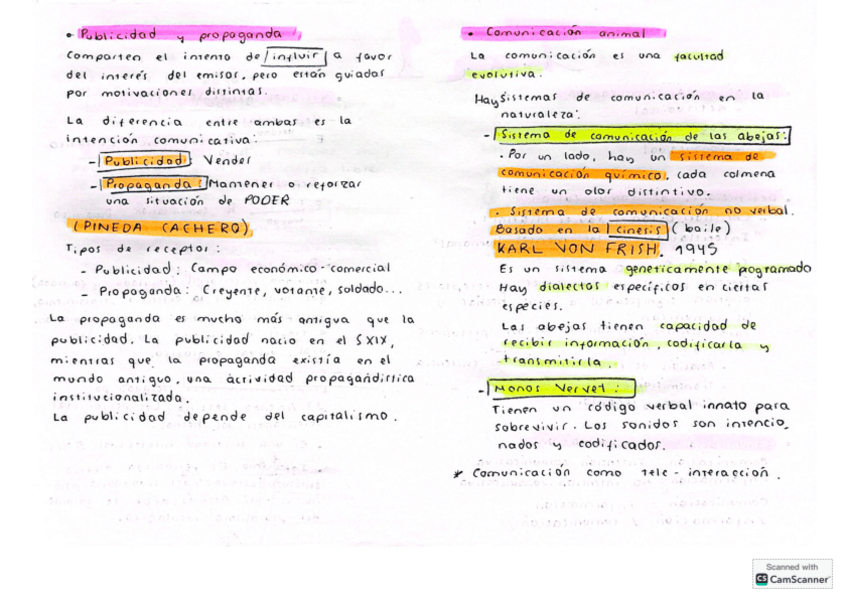 • Publicidad y propaganda
Comparten el intento de influir a favor
del interés del emisor, pero están guiadas
por motivaciones distintas.
La diferencia entre ambas es la
intención comunicativa:
- Publicidad: Vender
- Propaganda: Mantener o reforzar
una situación de PODER
(PINEDA CACHERO)
Tipos de receptores:
- Publicidad: Campo económico-comercial
- Propaganda: Creyente, votante, soldado...
La propaganda es mucho más antigua que la
publicidad. La publicidad nacio en el SXIX,
mientras que la propaganda existía en el
mundo antiguo, una actividad propagandística
institucionalizada.
La publicidad depende del capitalismo.
• Comunicación animal
La comunicación es una facultad
evolutiva.
Hay sistemas de comunicación en la
naturaleza:
- Sistema de comunicación de las abejas:
• Por un lado, hay un sistema de
comunicación químico, cada colmena
tiene un olor distintivo.
• Sistema de comunicación no verbal.
Basado en la cinesis (baile)
KARL VON FRISH, 1945
Es un sistema geneticamente programado
Hay dialectos específicos en ciertas
especies.
Las abejas tienen capacidad de
recibir información, codificarla y
transmitirla.
- Monos Vervet:
Tienen un código verbal innato para
sobrevivir. Los sonidos son intencio_
nados y codificados.
* Comunicación como tele-interacción.
Scanned with
CS CamScanner